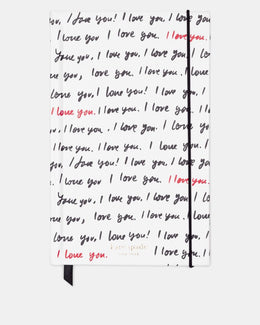 I love you, I love you! I love you,
I love you. I love you. I love you.
Love you, I love you, I love you, I
ve you, love you. I love you. I love
I love you, I love you! I love you,
I love you. I love you. I love you.
Love you, I love you, I love you
love you, I love you. I love you.
you, I love you! I love you, I lov
love you. I love you. I love you.
Love you, I love you, I love you, I l
ve you, I love you. I love you. I
love you, I love you! I love you
I love you. I love you.
kate spade
NEW YORK